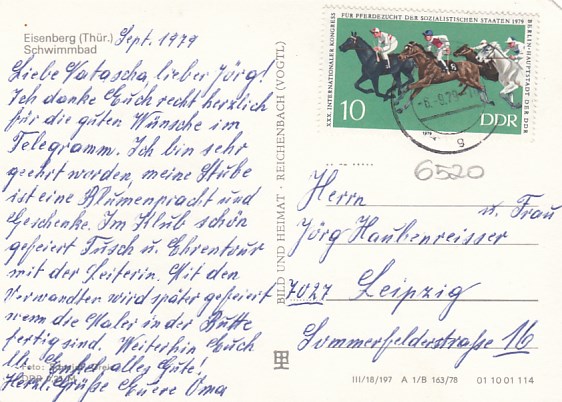 Eisenberg (Thür.)
Schwimmbad
Sept. 1979
Liebe Natascha, lieber Jörg!
Ich danke Euch recht herzlich
für die guten Wünsche im
Telegramm. Ich bin sehr
geehrt worden, meine Stube
ist eine Blumenpracht und
Geschenke. Im Klub schön
gefeiert Tusch u. Ehrentour
mit der Leiterin. Mit den
Verwandten wird später gefeiert
wenn die Maler in der Bütte
fertig sind. Weiterhin Euch
alles Gute!
Herzl. Grüße Euere Oma
Foto:
BILD UND HEIMAT · REICHENBACH (VOGTL)
XXX. INTERNATIONALER KONGRESS
FÜR PFERDEZUCHT DER SOZIALISTISCHEN STAATEN 1979
BERLIN-HAUPTSTADT DER DDR
10
DDR
-6.-9.79-
g
6520
Herrn
u. Frau
Jörg Haubenreisser
7027 Leipzig
Sommerfelderstraße 16
III/18/197 A 1/B 163/78 01 10 01 114